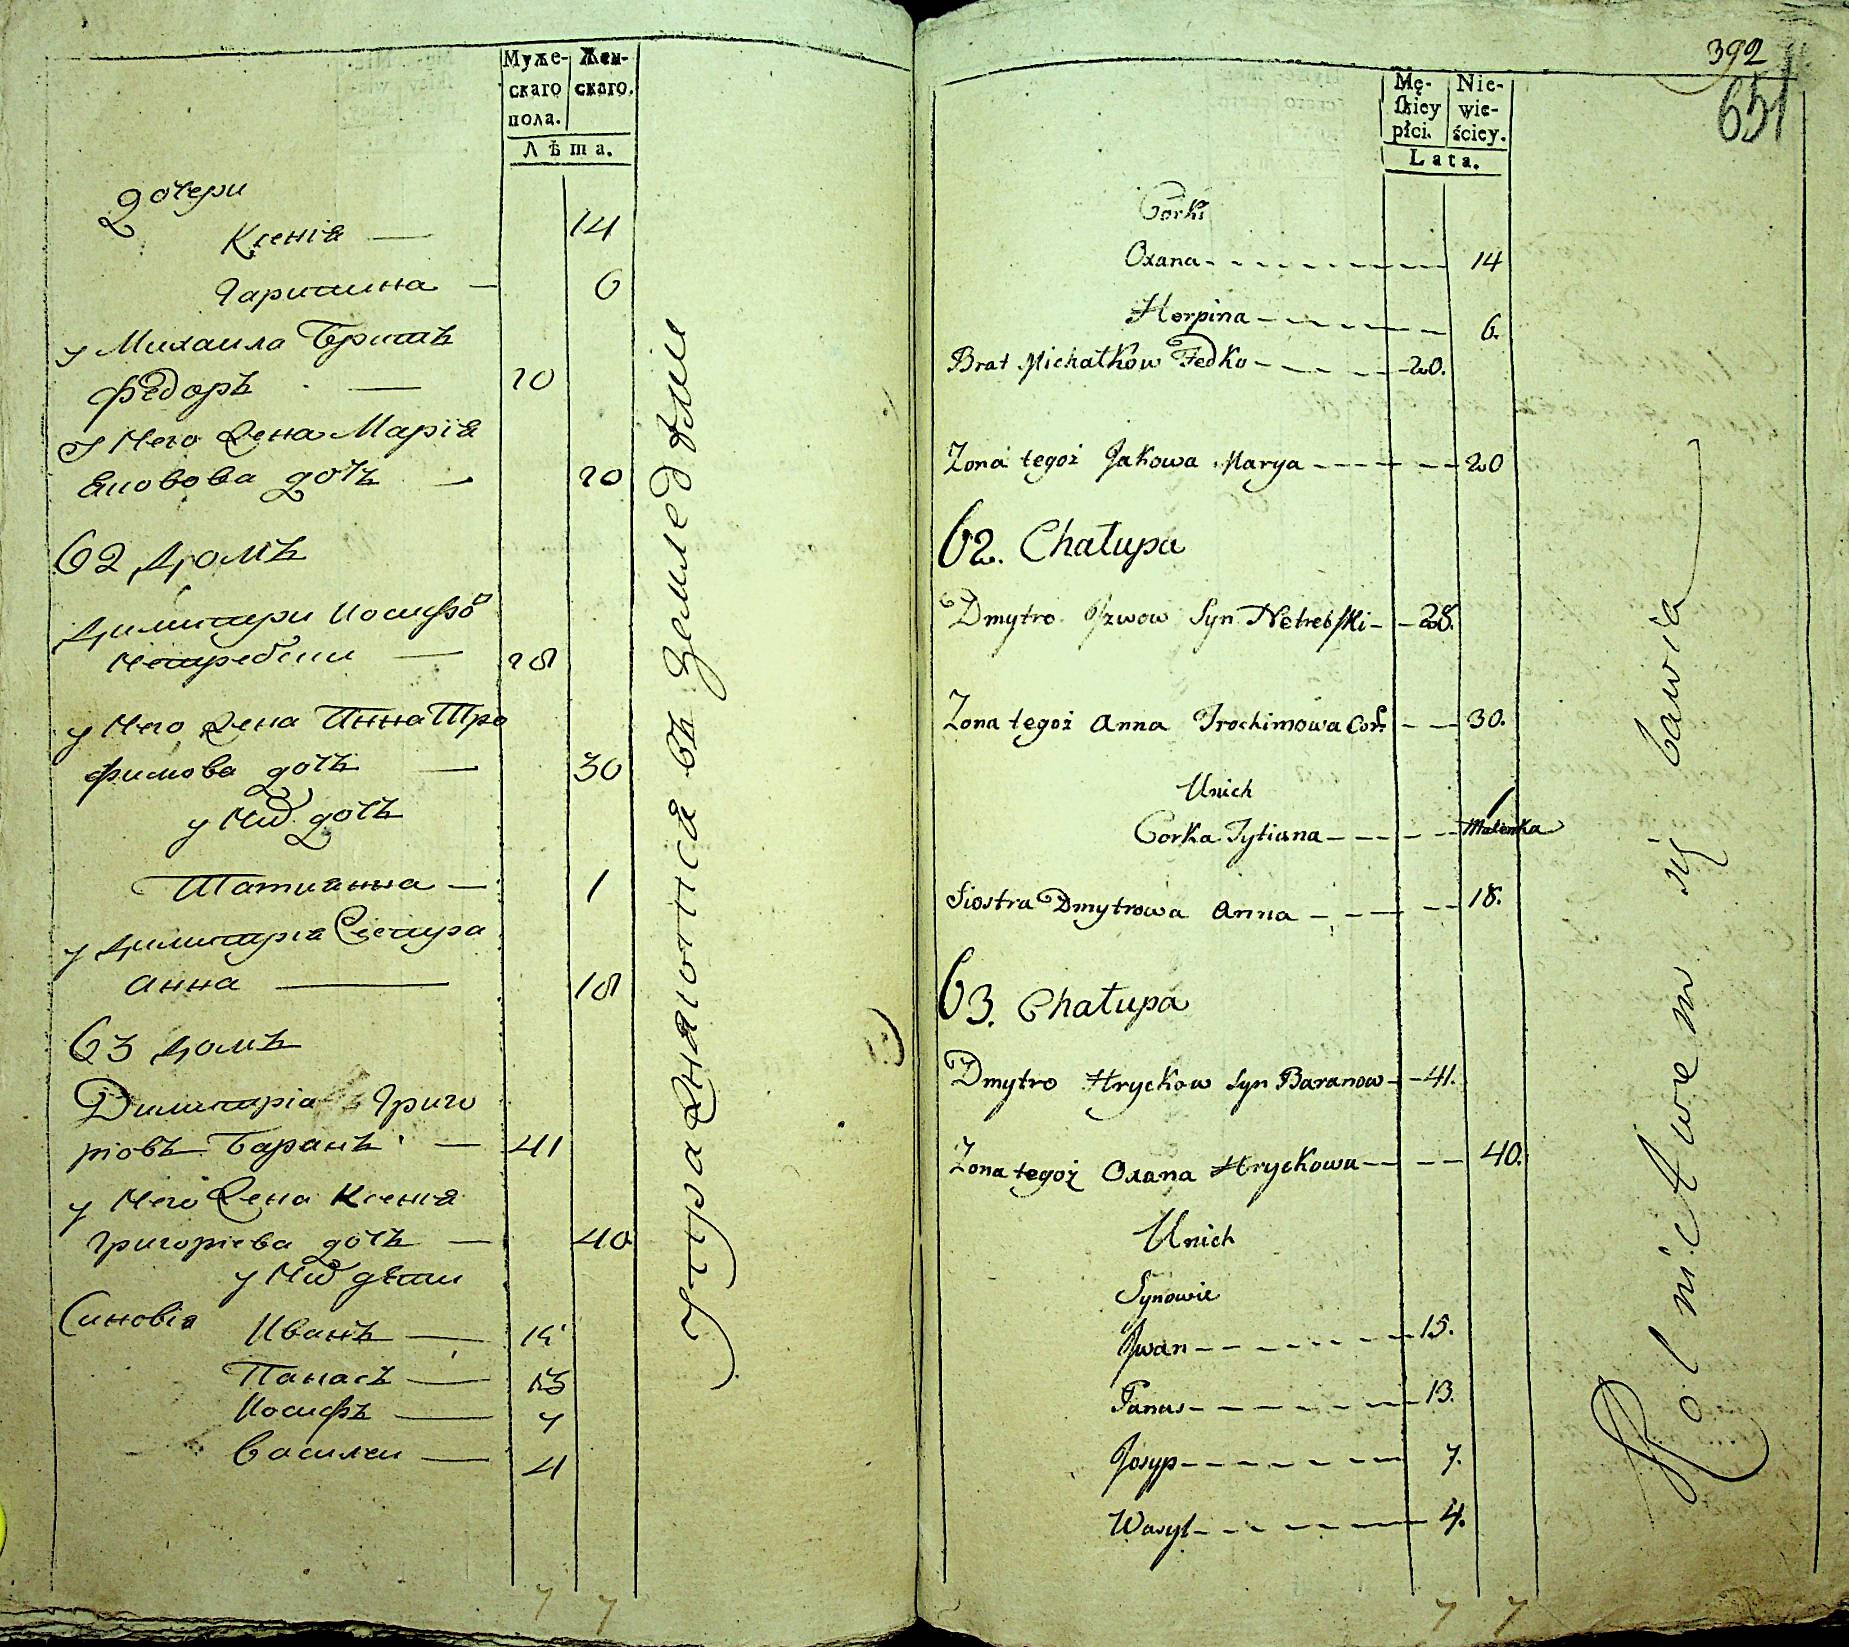 Муже- Жен-
скаго скаго.
пола.
Лѣта.
Дочери
Ксенія — 14
Гарпина — 6
у Михаила братъ
Федоръ — 20
у него жена Марія
Яковова дочъ — 20
62 домъ
Димитри Иосифо
Нетребски — 28
у него жена Анна Тро
фимова дочъ — 30
у них дочъ
Татианна — 1
у Димитрія Сестра
Анна — 18
63 домъ
Димитрія Григо
ріовъ Баранъ — 41
у него жена Ксенія
Григоріева дочъ — 40
у них дѣти
Синовія Иванъ — 15
Панасъ — 13
Иосифъ — 7
Василеи — 4
7 7
упражняются въ земледѣлии
392
651
Mę- Nie-
skiey wie-
płci. ściey.
Lata.
Corki
Oxana 14
Herpina 6.
Brat Michałkow Fedko 20.
Zona tegoż Jakowa Marya 20
62. Chałupa
Dmytro Jzwow Syn Netrebski 28.
Zona tegoż Anna Trochimowa Cor. 30.
Unich
1
Corka Tytiana Malenka
Siostra Dmytrowa Anna 18.
63. Chałupa
Dmytro Hryckow Syn Baranow 41.
Zona tegoż Oxana Hryckowa 40.
Unich
Synowie
Jwan 15.
Panas 13.
Josyp 7.
Wasyl 4.
7 7
Rolnictwem się bawia